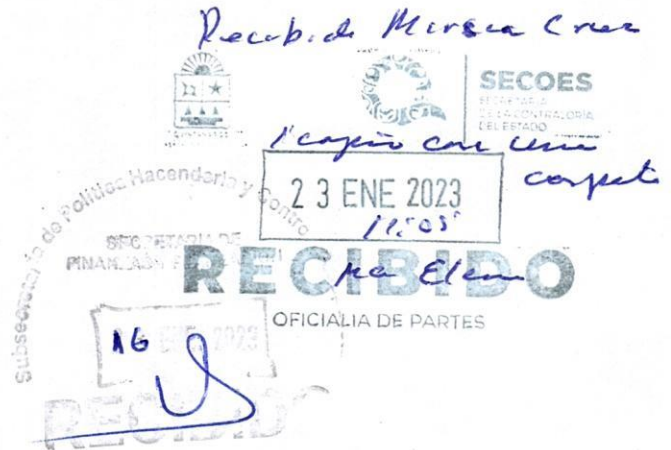 SECOES
SECRETARÍA
DE LA CONTRALORÍA
DEL ESTADO
1 copia con una
carpeta
23 ENE 2023
11:05
RECIBIDO
OFICIALIA DE PARTES
Subsecretaría de Política Hacendaria y Contro
SECRETARÍA DE
16 ENE 2023
RECIBIDO